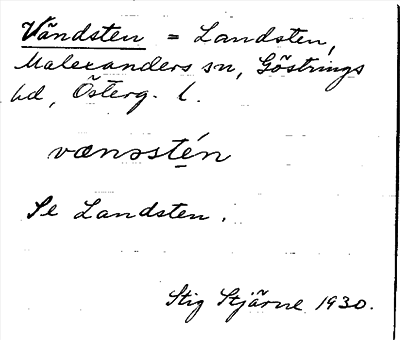 Vändsten = Landsten,
Malexanders sn, Göstrings
hd, Österg. l.
vænəstén
Se Landsten.
Stig Stjärne 1930.